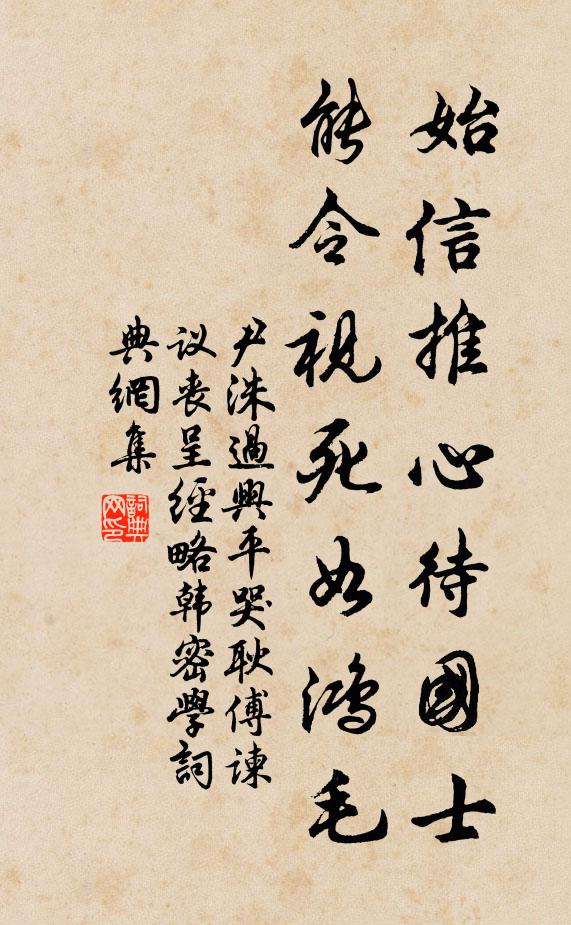 始信推心待國士
能令視死如鴻毛
尹洙過興平哭耿傅諫
议喪呈經略韩密學詞
典網集
詞典
网印